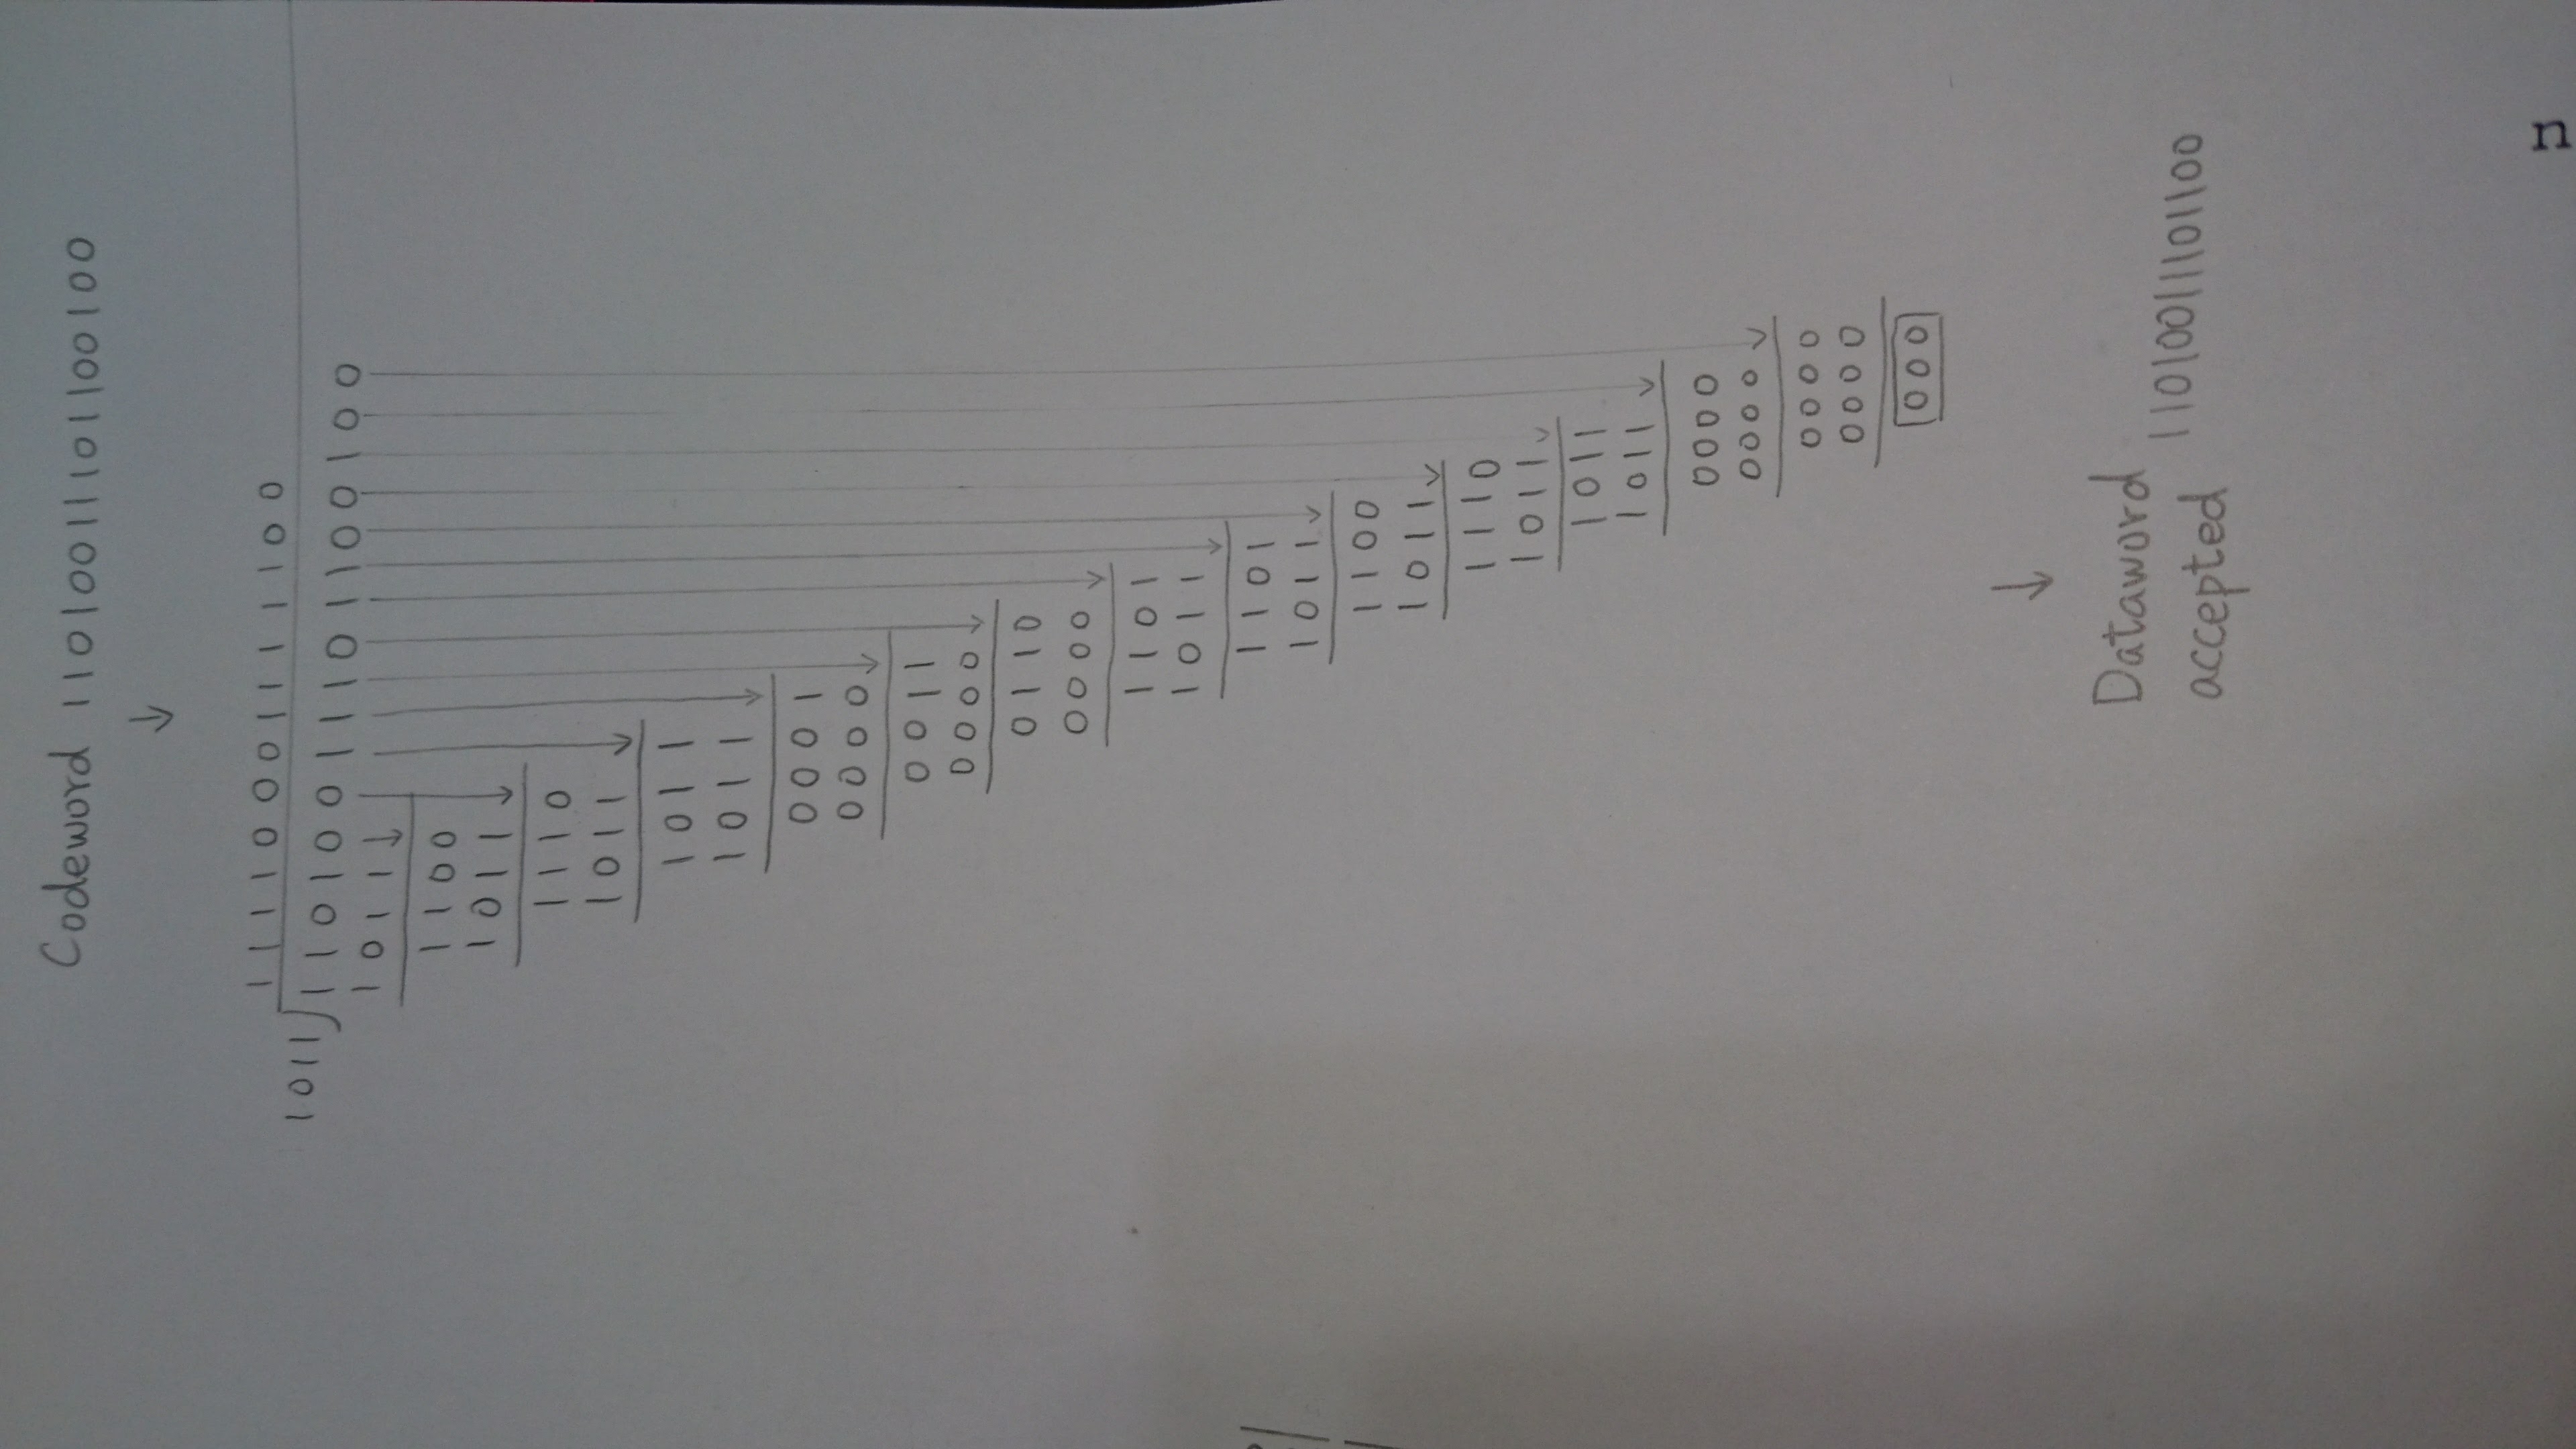 Codeword 11010011101100100
↓
11110001111100
1011)11010011101100100
1011
1100
1011
1110
1011
1011
1011
0001
0000
0011
0000
0110
0000
1101
1011
1101
1011
1100
1011
1110
1011
1011
1011
0000
0000
0000
0000
000
↓
Dataword
accepted 11010011101100
n